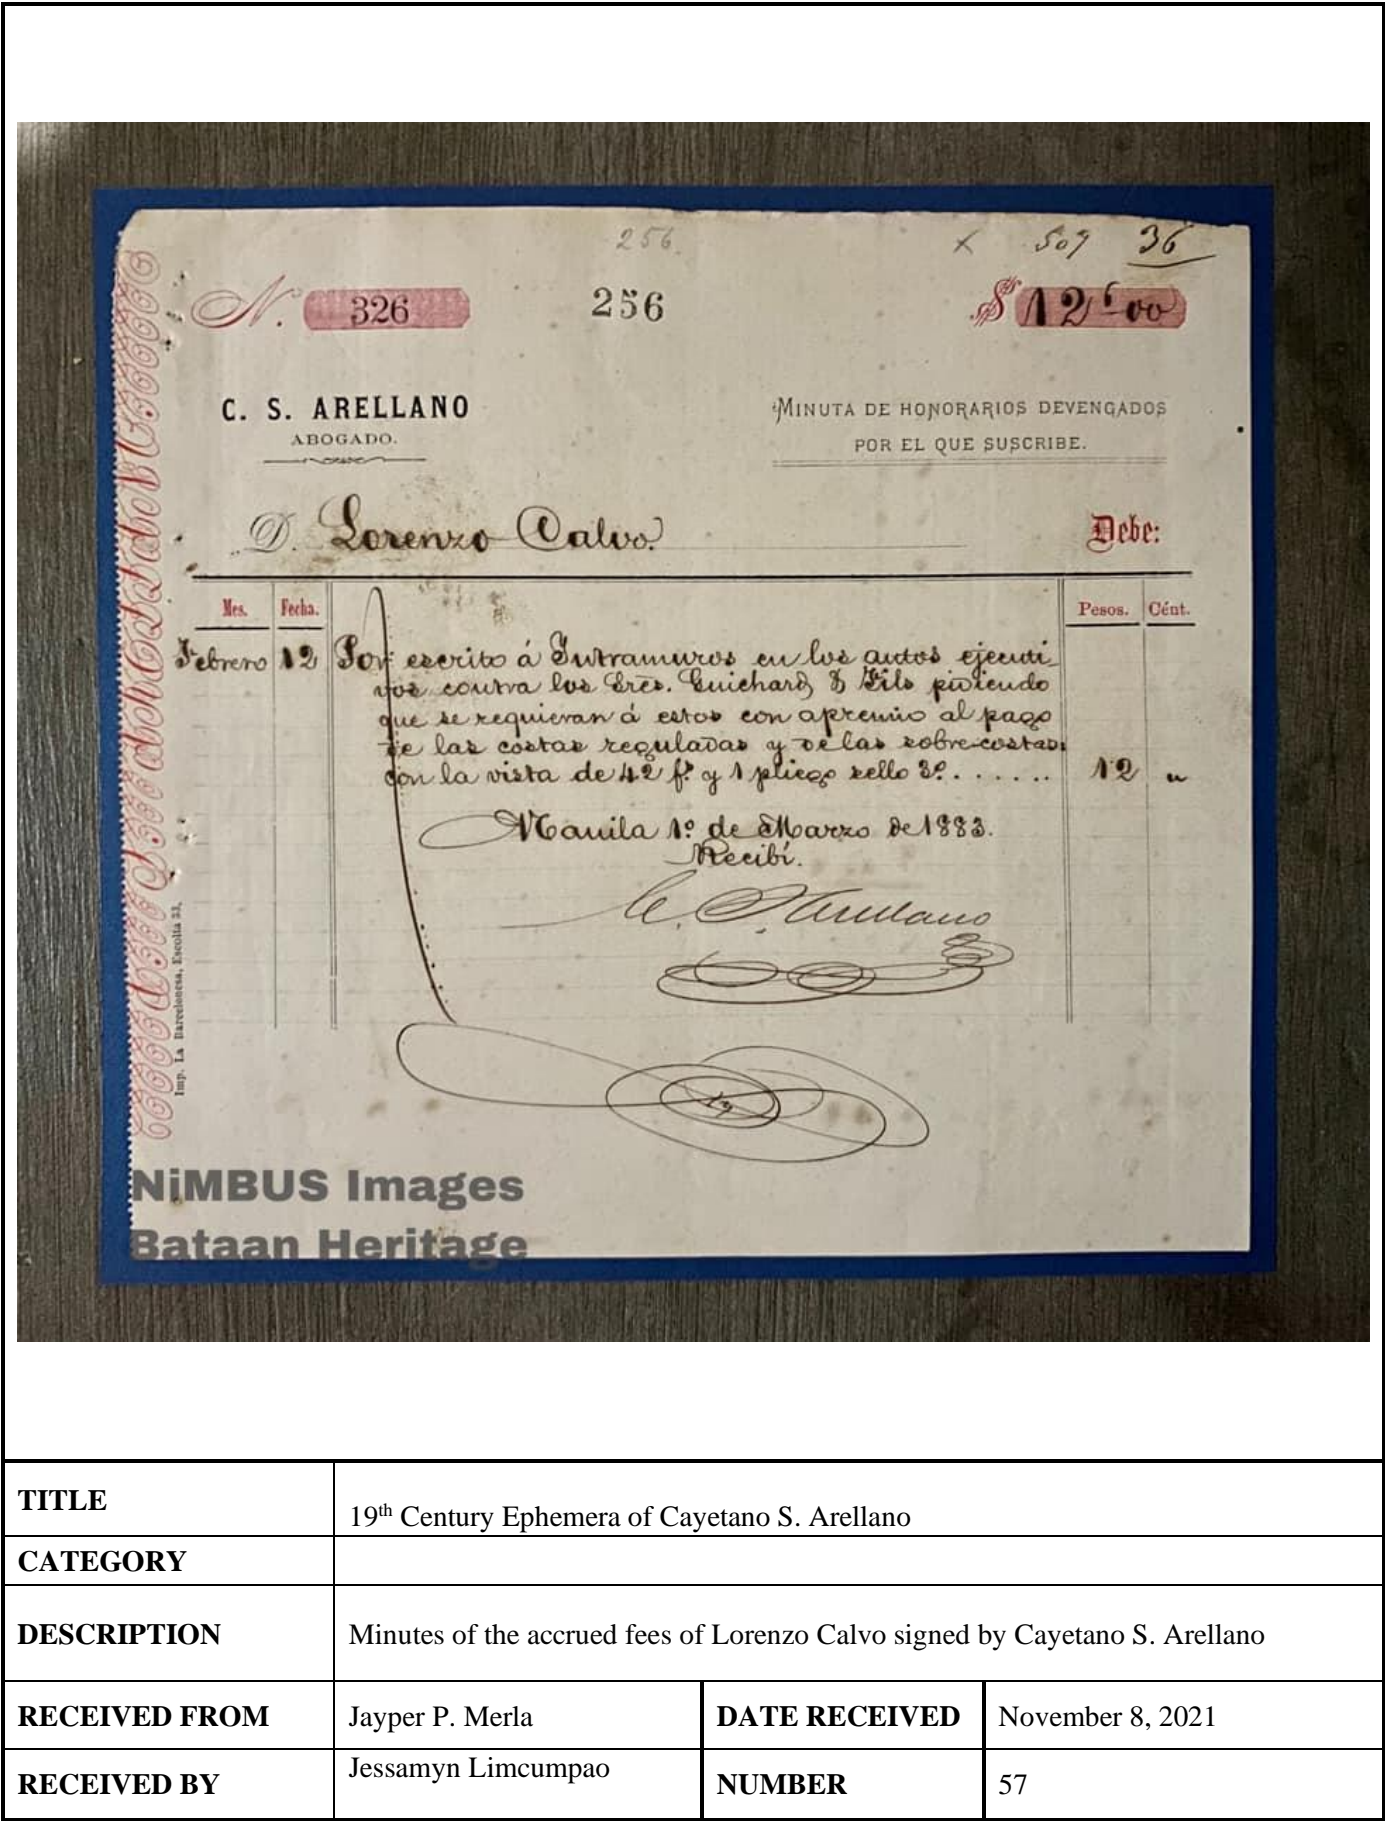 256.
x 509 36
N. 326 256 $ 12 " 00
C. S. ARELLANO
ABOGADO.
MINUTA DE HONORARIOS DEVENGADOS
POR EL QUE SUSCRIBE.
D. Lorenzo Calvo. Debe:
Mes. Fecha. Pesos. Cént.
Febrero 12 Por escrito á Intramuros en los autos ejecuti-
vos contra los Sres. Guichard & Fils pidiendo
que se requieran á estos con apremio al pago
de las costas reguladas y de las sobre-costas:
con la vista de 42 fs. y 1 pliego sello 3º. . . . . . . 12 "
Manila 1º de Marzo de 1883.
Recibí.
C. S. Arellano
Imp. La Barcelonesa, Escolta 33,
NiMBUS Images
Bataan Heritage
TITLE 19th Century Ephemera of Cayetano S. Arellano
CATEGORY
DESCRIPTION Minutes of the accrued fees of Lorenzo Calvo signed by Cayetano S. Arellano
RECEIVED FROM Jayper P. Merla DATE RECEIVED November 8, 2021
RECEIVED BY Jessamyn Limcumpao NUMBER 57